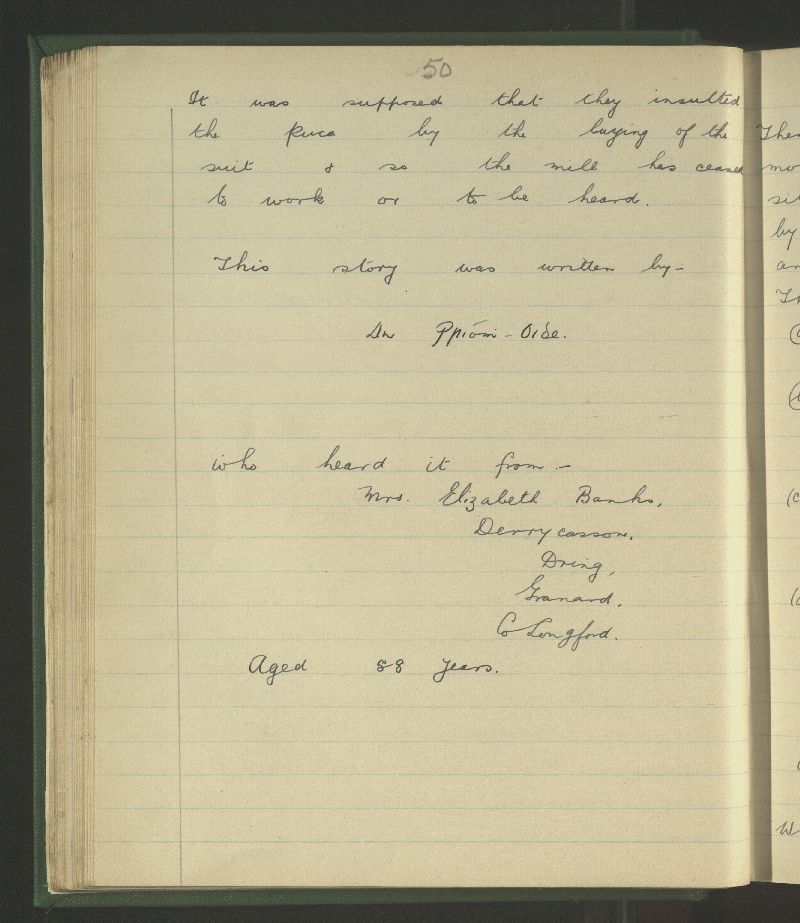 50
It was supposed that they insulted
the Puca by the buying of the
suit & so the mill has ceased
to work or to be heard.
This story was written by -
An Príom-Oide.
who heard it from :-
Mrs. Elizabeth Banks,
Derrycasson,
Dring,
Granard,
Co Longford.
Aged 88 years.